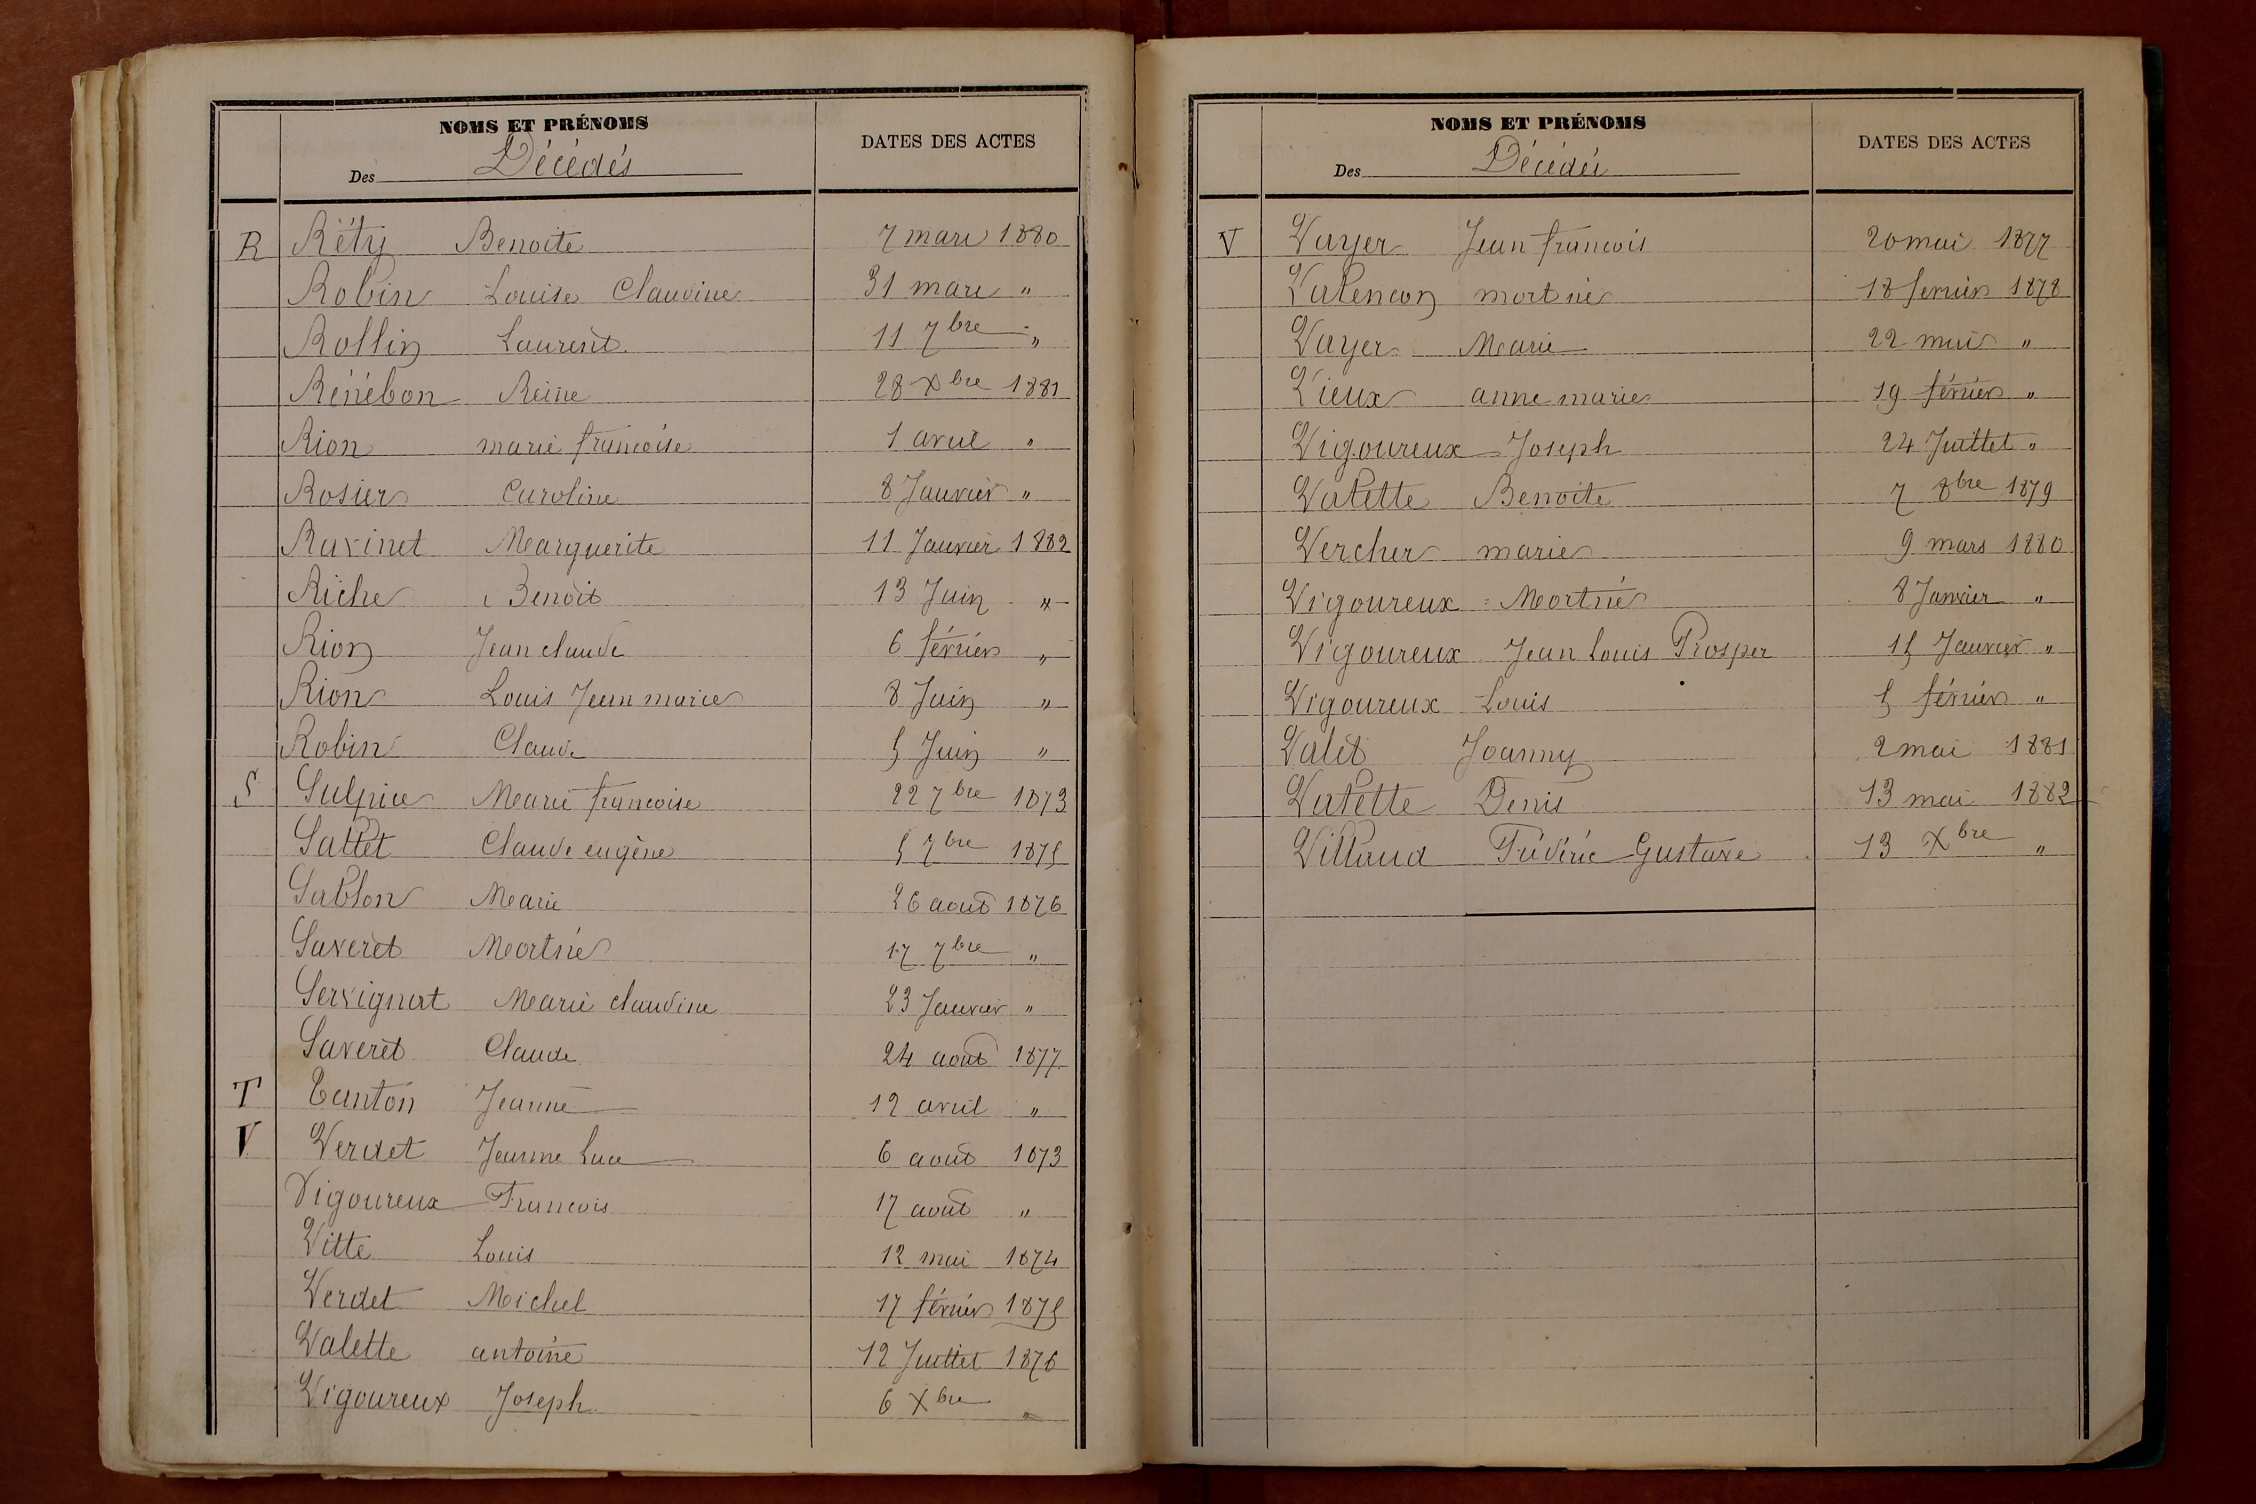 NOMS ET PRÉNOMS
Des Décédés
DATES DES ACTES
R Réty Benoite 7 mars 1880
Robin Louise Claudine 31 mars "
Rollin Laurent 11 7bre "
Rénébon Reine 28 Xbre 1881
Rion marie francoise 1 avril "
Rosier Caroline 8 Janvier "
Ravinet Marguerite 11 Janvier 1882
Riche Benoit 13 Juin "
Rion Jean claude 6 février "
Rion Louis Jean marie 8 Juin "
Robin Claude 5 Juin "
S Sulpice Marie francoise 22 7bre 1873
Sallet Claude eugène 5 7bre 1875
Sablon Marie 26 aout 1876
Saveret Mortné 17 7bre "
Servignat Marie claudine 23 Janvier "
Saveret Claude 24 aout 1877
T Tanton Jeanne 12 avril "
V Verdet Jeanne Luce 6 aout 1873
Vigoureux Francois 17 aout "
Vitte Louis 12 mai 1874
Verdet Michel 17 février 1875
Valette antoine 12 Juillet 1876
Vigoureux Joseph 6 Xbre "
NOMS ET PRÉNOMS
Des Décédés
DATES DES ACTES
V Vayer Jean francois 20 mai 1877
Valencon mort né 18 fevrier 1878
Vayer Marie 22 mars "
Vieux anne marie 19 février "
Vigoureux Joseph 24 Juillet "
Valette Benoite 7 8bre 1879
Vercher marie 9 mars 1880
Vigoureux Mortné 8 Janvier "
Vigoureux Jean Louis Prosper 15 Janvier "
Vigoureux Louis 5 février "
Valet Joanny 2 mai 1881
Valette Denis 13 mai 1882
Villaud Frédéric Gustave 13 Xbre "